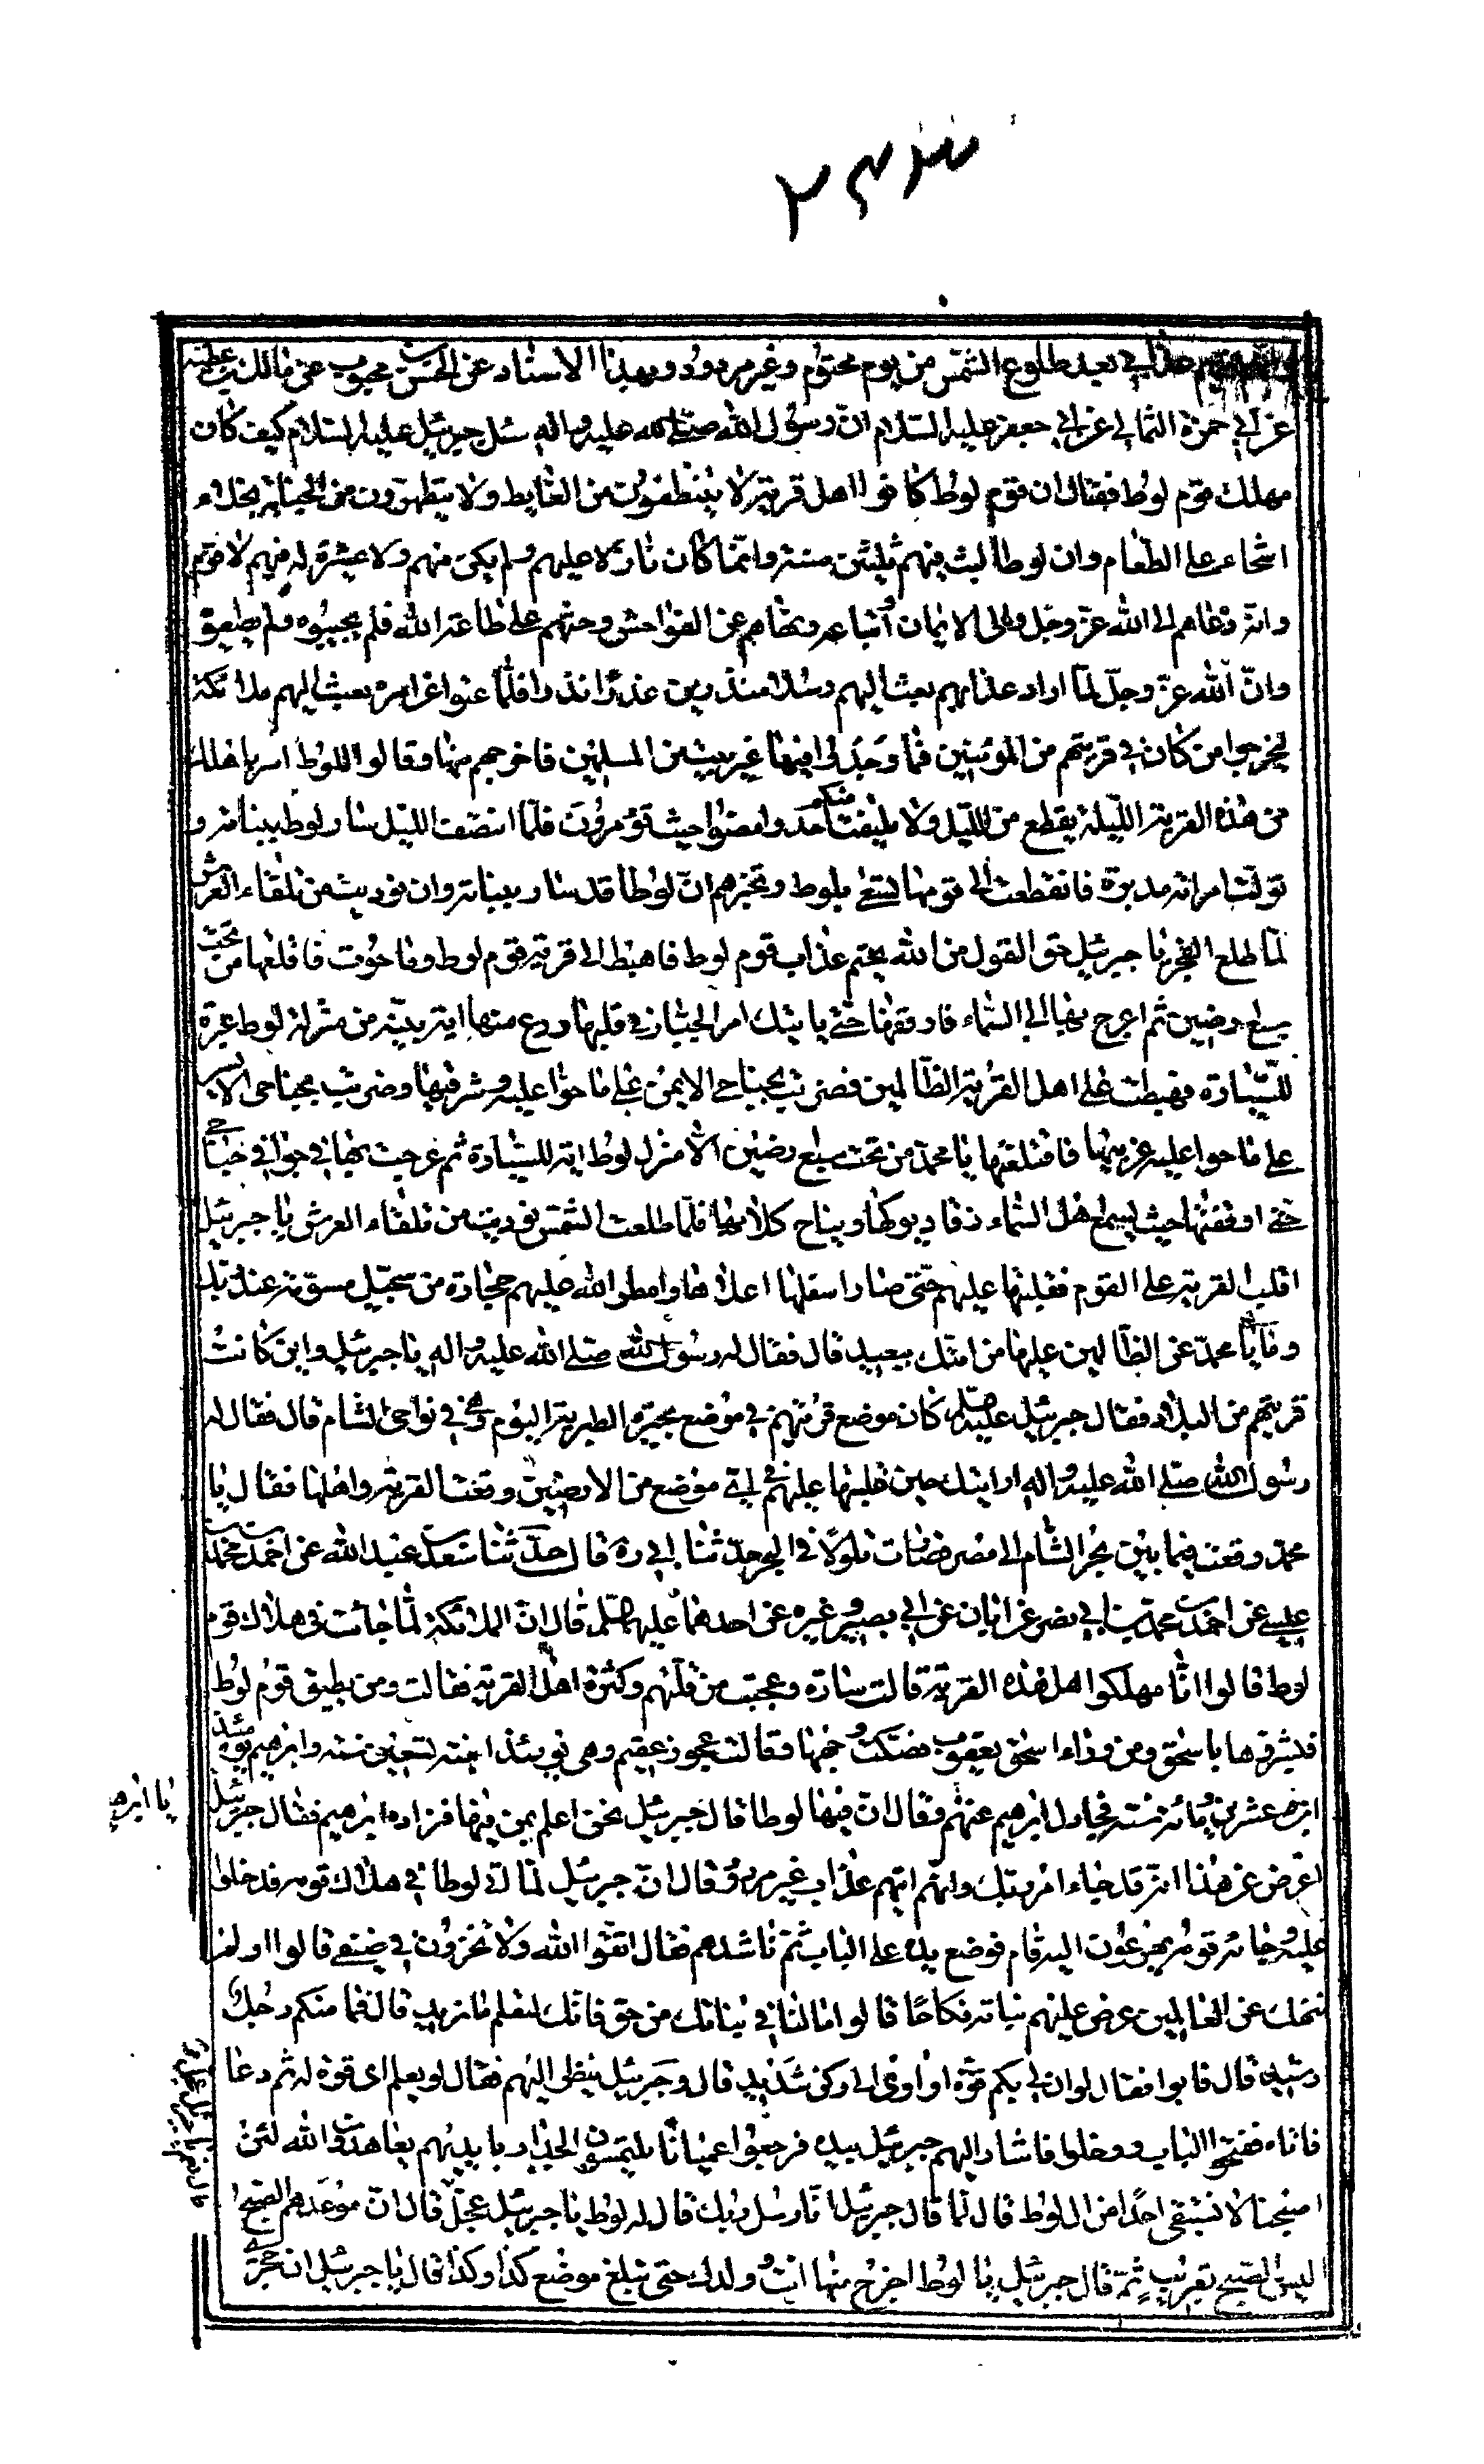 عذابي بعد طلوع الشمس من يوم محتوم وغير مردود وبهذا الاسناد عن الحسن بن محبوب عن مالك بن عطيه
عن ابي حمزة الثمالي عن ابي جعفر عليه السلام ان رسول الله صلى الله عليه واله سئل جبرئيل عليه السلام كيف كان
مهلك قوم لوط فقال ان قوم لوط كانوا اهل قرية لا يتنظفون من الغايط ولا يتطهرون من الجنابة بخلاء
اشحاء على الطعام وان لوطا لبث فيهم ثلثين سنة وانما كان نازلا عليهم ولم يكن منهم ولا عشيرة له فيهم ولا قوم
وانه دعاهم الى الله عز وجل والى الايمان واتباعه ونهاهم عن الفواحش وحثهم على طاعة الله فلم يجيبوه ولم يطيعوه
وان الله عز وجل لما اراد عذابهم بعث اليهم رسلا منذرين عذرا نذرا فلما عتوا عن امره بعث اليهم ملائكة
ليخرجوا من كان في قريتهم من المؤمنين فما وجدوا فيها غير بيت من المسلمين فاخرجهم منها وقالوا للوط اسر باهلك
من هذه القرية الليلة بقطع من الليل ولا يلتفت منكم احد وامضوا حيث تؤمرون فلما انتصف الليل سار لوط ببناته و
تولت امراته مدبرة فانقطعت الى قومها تسعى بلوط وتخبرهم ان لوطا قد سار ببناته وان نوديت من تلقاء العرش
لما طلع الفجر يا جبرئيل حق القول من الله بحتم عذاب قوم لوط فاهبط الى قرية قوم لوط وما حوت فاقلعها من تحت
سبع ارضين ثم اعرج بها الى السماء فاوقفها حتى ياتيك امر الجبار في قلبها ودع منها اية بينة من منزل لوط عبرة
للسيارة فهبطت على اهل القرية الظالمين فضربت بجناحي الايمن على ما حوا عليه شرقيها وضربت بجناحي الايسر
على ما حوا عليه غربيها فاقتلعتها يا محمد من تحت سبع ارضين الا منزل لوط اية للسيارة ثم عرجت بها في خوافي جناحي
حتى اوقفتها حيث يسمع اهل السماء زقاء ديوكها ونباح كلابها فلما طلعت الشمس نوديت من تلقاء العرش يا جبرئيل
اقلب القرية على القوم فقلبتها عليهم حتى صار اسفلها اعلاها وامطر الله عليهم حجارة من سجيل مسومة عند ربك
وما هي يا محمد عن الظالمين عليها من امتك ببعيد قال فقال له رسول الله صلى الله عليه واله يا جبرئيل واين كانت
قريتهم من البلاد فقال جبرئيل عليه السلام كان موضع قريتهم في موضع بحيرة الطبرية اليوم وهي في نواحي الشام قال فقال له
رسول الله صلى الله عليه واله ارايتك حين قلبتها عليهم في اي موضع من الارضين وقعت القرية واهلها فقال يا
محمد وقعت فيما بين بحر الشام الى مصر فصارت تلولا في البحر حدثنا ابي ره قال حدثنا سعد بن عبد الله عن احمد بن محمد بن
عيسى عن احمد بن محمد بن ابي نصر عن ابان عن ابي بصير وغيره عن احدهما عليهما السلم قال ان الملائكة لما جائت في هلاك قوم
لوط قالوا انا مهلكوا اهل هذه القرية قالت سارة وعجبت من قلتهم وكثرة اهل القرية فقالت ومن يطيق قوم لوط
فبشروها باسحق ومن وراء اسحق يعقوب فصكت وجهها وقالت عجوز عقيم وهي يومئذ ابنة تسعين سنه وابرهيم يومئذ
ابن عشرين ومائة سنة فجادل ابرهيم عنهم وقال ان فيها لوطا قال جبرئيل نحن اعلم بمن فيها فزاده ابرهيم فقال جبرئيل
يا ابرهيم
اعرض عن هذا انه قد جاء امر ربك وانهم اتيهم عذاب غير مردود قال ان جبرئيل لما اتى لوطا في هلاك قومه فدخلوا
عليه وجائه قومه يهرعون اليه قام فوضع يده على الباب ثم ناشدهم فقال اتقوا الله ولا تخزون في ضيفي قالوا اولم
ننهك عن العالمين عرض عليهم بناته نكاحا قالوا ما لنا في بناتك من حق وانك لتعلم ما نريد قال فما منكم رجل
رشيد قال فابوا فقال لو ان لي بكم قوة او اوي الى ركن شديد قال وجبرئيل ينظر اليهم فقال لو يعلم اي قوة له ثم دعاه
فاتاه ففتحوا الباب ودخلوا فاشار اليهم جبرئيل بيده فرجعوا عميانا يلتمسون الجدار بايديهم يعاهدون الله لئن
اصبحنا لا نستبقي احدا من ال لوط قال لما قال جبرئيل انا رسل ربك قال له لوط يا جبرئيل عجل قال ان موعدهم الصبح
اليس الصبح بقريب ثم قال جبرئيل يا لوط اخرج منها انت وولدك حتى تبلغ موضع كذا وكذا قال يا جبرئيل ان حمري